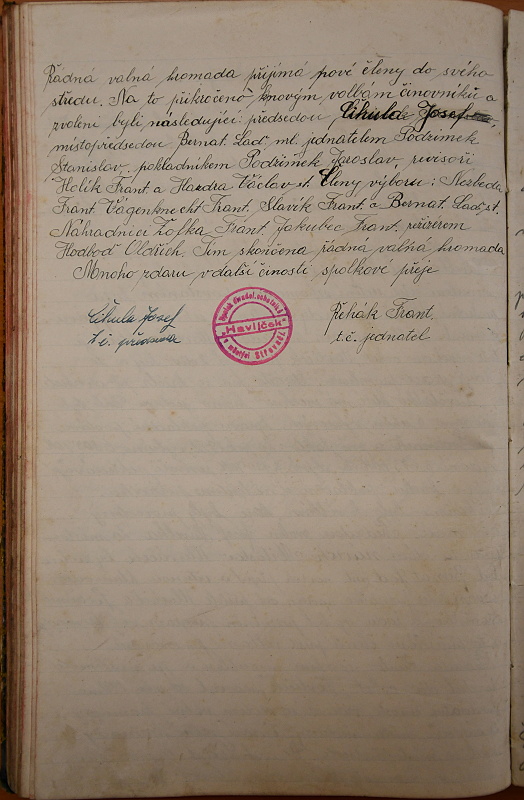 Řádná valná hromada přijímá nové členy do svého
středu. Na to přikročeno k novým volbám činovníků a
zvoleni byli následující předsedou Cihula Josef
místopředsedou Bernat. Lad. ml. jednatelem Podzimek
Stanislav, pokladníkem Podzimek Jaroslav, revisoři
Holík Frant a Handra Václav st. Členy výboru: Nezbeda
Frant. Vágenknecht Frant. Slavík Frant. a Bernat. Lad. st.
Náhradníci Žofka Frant. Jakubec Frant. režisérem
Hodboď Oldřich. Tím skončena řádná valná hromada
Mnoho zdaru v další činosti spolkové přeje
Cihula Josef
t. č. předseda
Řehák Frant.
t. č. jednatel
Spolek divadel. ochotníků
"Havlíček"
v městysi